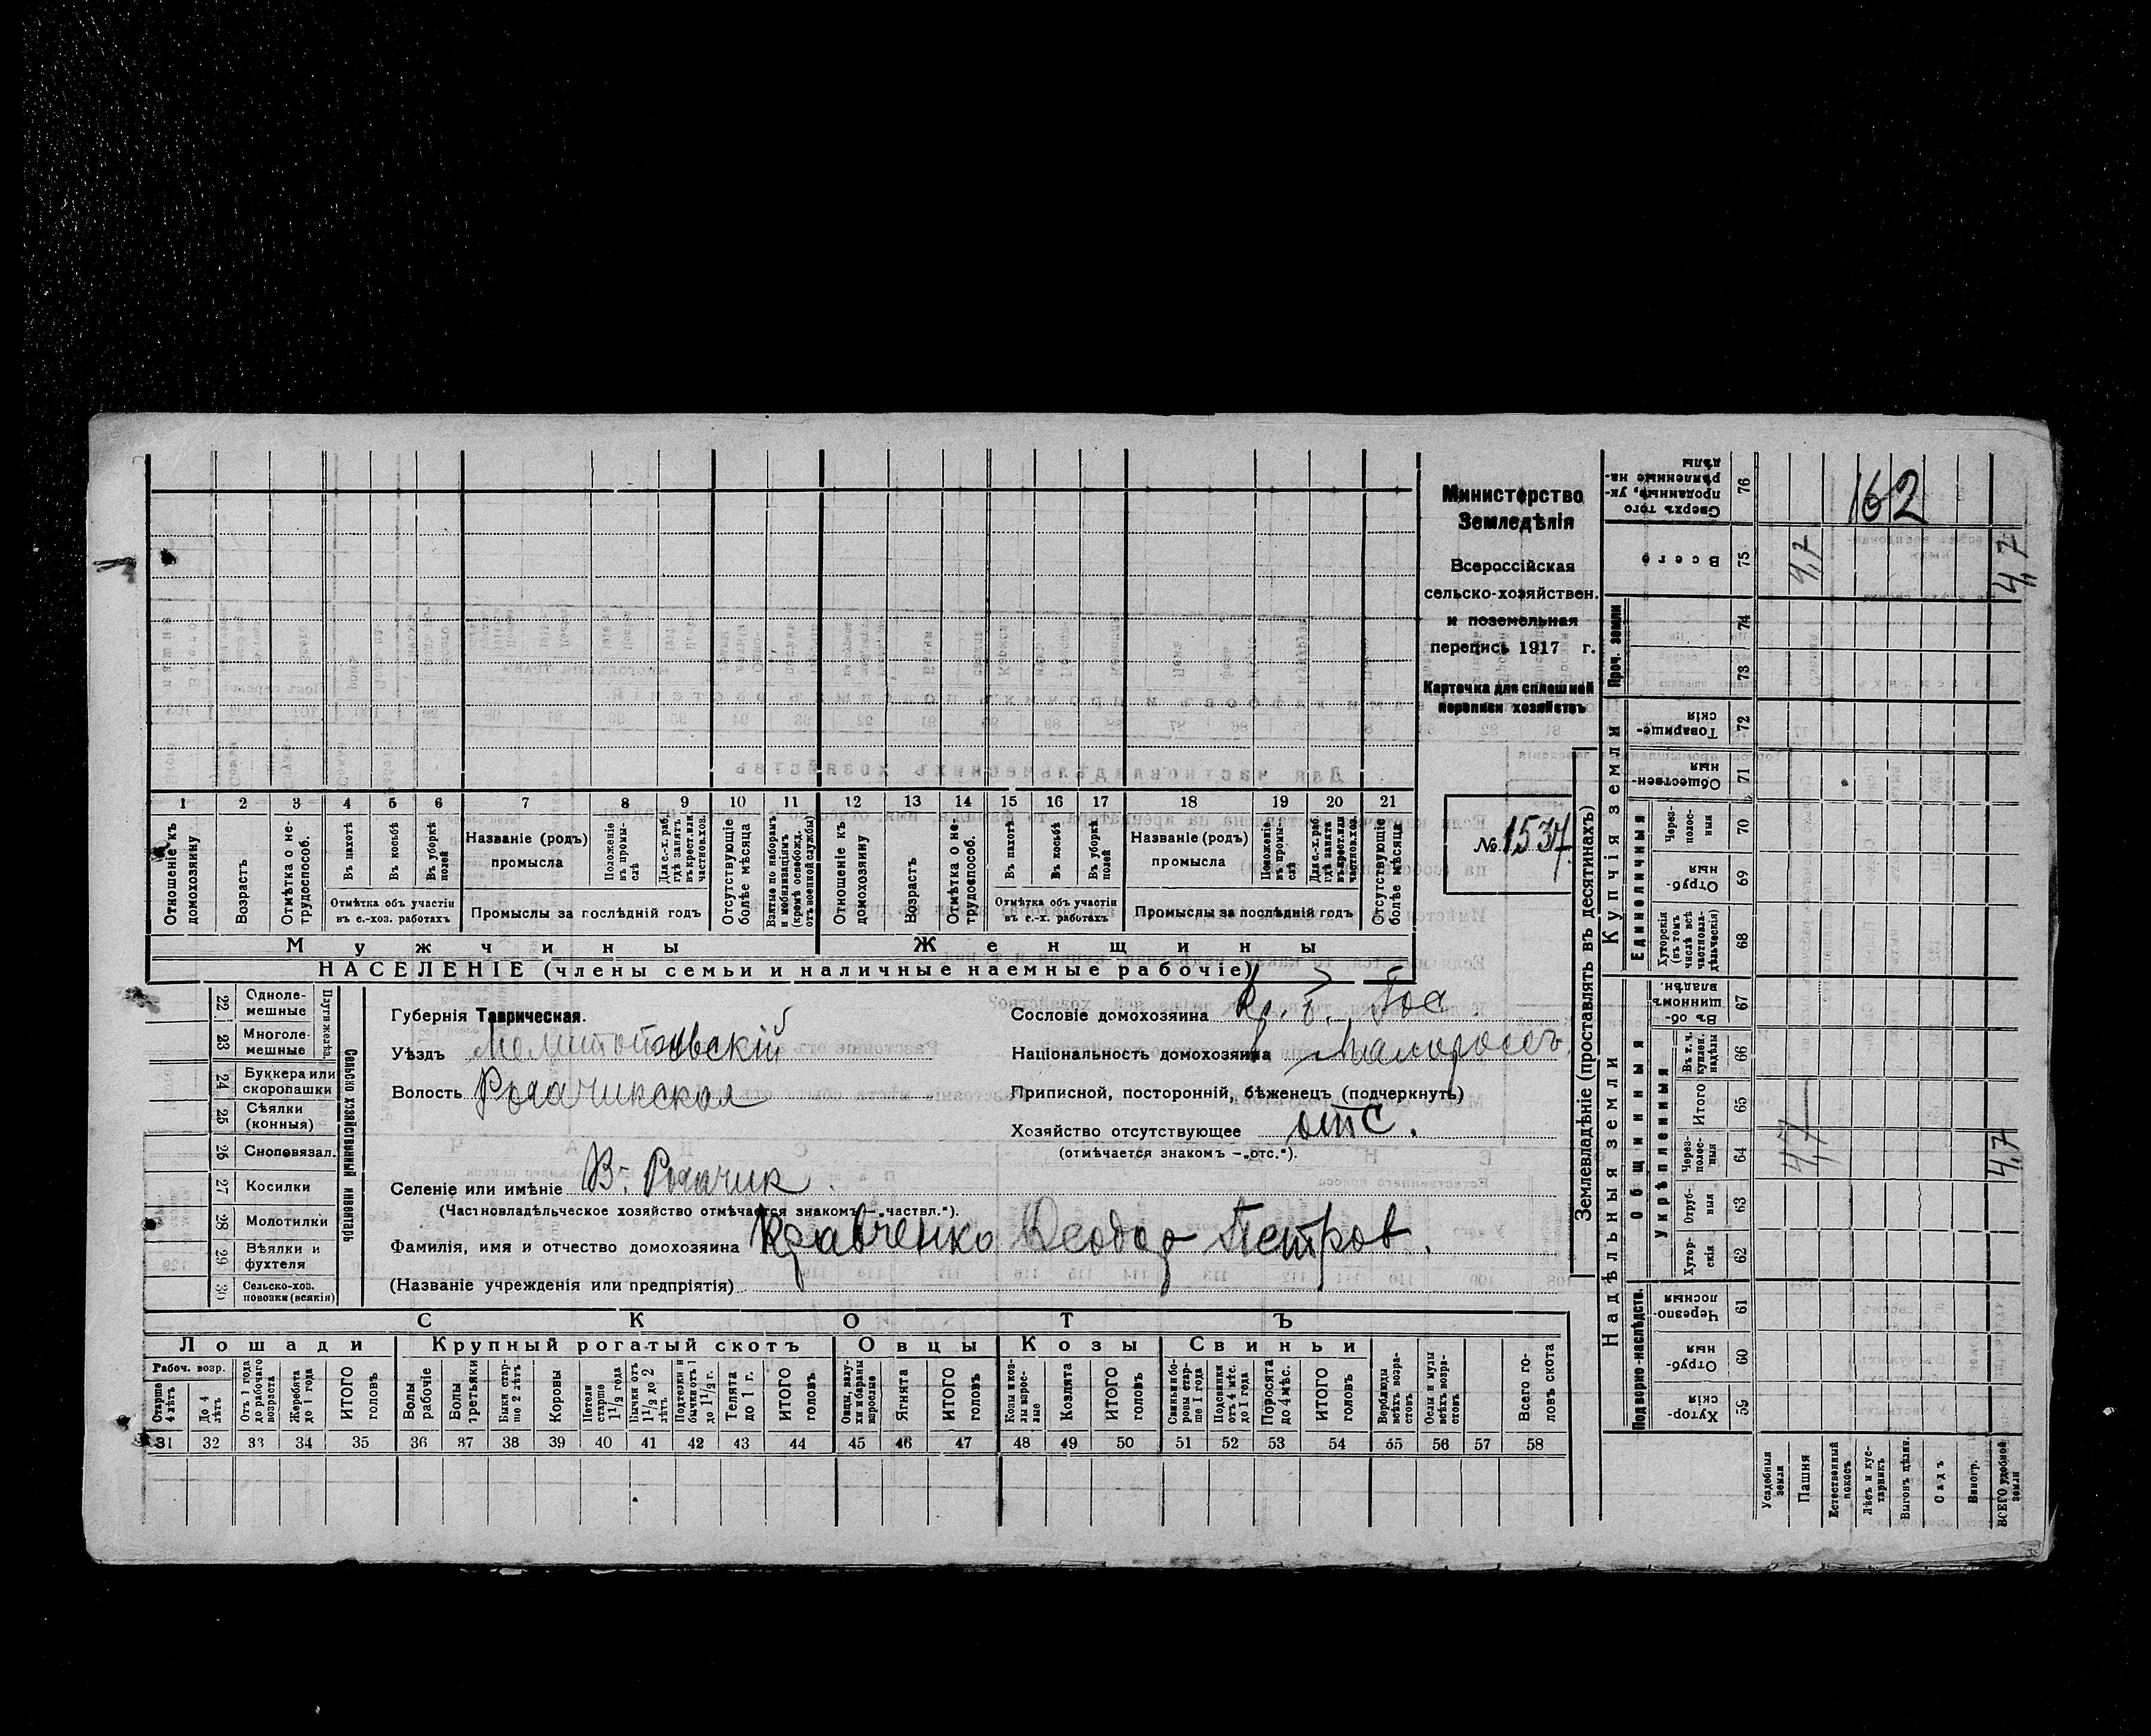 Министерство
Земледѣлія
Всероссійская
сельско-хозяйствен.
и поземельная
перепись 1917 г.
Карточка для сплошной
переписи хозяйствъ
№ 1537
1 2 3 4 5 6 7 8 9 10 11 12 13 14 15 16 17 18 19 20 21
Отношеніе къ домохозяину
Возрастъ
Отмѣтка о не-трудоспособ.
Въ пахотѣ
Въ косьбѣ
Въ уборкѣ полей
Отмѣтка объ участіи въ с.-хоз. работахъ
Названіе (родъ) промысла
Положеніе въ промы-слѣ
Для с.-х. раб. гдѣ занятъ въ крест. или частнов. хоз.
Промыслы за послѣдній годъ
Отсутствующіе болѣе мѣсяца
Взятые по наборамъ и мобилизаціямъ (кромѣ освобожд. отъ военной службы)
Отношеніе къ домохозяину
Возрастъ
Отмѣтка о не-трудоспособ.
Въ пахотѣ
Въ косьбѣ
Въ уборкѣ полей
Отмѣтка объ участіи въ с.-х. работахъ
Названіе (родъ) промысла
Положеніе въ промы-слѣ
Для с.-х. раб. гдѣ занята въ крест. или частнов. хоз.
Промыслы за послѣдній годъ
Отсутствующіе болѣе мѣсяца
Мужчины Женщины
НАСЕЛЕНІЕ (члены семьи и наличные наемные рабочіе)
Сельско хозяйственный инвентарь
Плуги желѣз.
22 Одноле-мешные
23 Многоле-мешные
24 Буккера или скоропашки
25 Сѣялки (конныя)
26 Сноповязал.
27 Косилки
28 Молотилки
29 Вѣялки и фухтеля
30 Сельско-хоз. повозки (всякія)
Губернія Таврическая.
Уѣздъ Мелитопольскій
Волость Рогачикская
Селеніе или имѣніе В-Рогачик
(Частновладѣльческое хозяйство отмѣчается знакомъ — „частвл.“).
Фамилія, имя и отчество домохозяина Кравченко Ѳеодор Петров.
(Названіе учрежденія или предпріятія)
Сословіе домохозяина Кр. б. Гос
Національность домохозяина Малороссъ
Приписной, посторонній, бѣженецъ (подчеркнуть)
Хозяйство отсутствующее отс.
(отмѣчается знакомъ — „отс.“).
СКОТЪ
Лошади Крупный рогатый скотъ Овцы Козы Свиньи
Рабоч. возр.
Старше 4 лѣтъ
До 4 лѣтъ
Отъ 1 года до рабочаго возраста
Жеребята до 1 года
ИТОГО головъ
Волы рабочіе
Волы третьяки
Быки стар-ше 2 лѣтъ
Коровы
Нетели старше 1 1/2 года
Бычки отъ 1 1/2 до 2 лѣтъ
Подтелки и бычки отъ 1 до 1 1/2 г.
Телята до 1 г.
ИТОГО головъ
Овцы, валу-хи и бараны взрослые
Ягнята
ИТОГО головъ
Козы и коз-лы взрос-лые
Козлята
ИТОГО головъ
Свиньи и бо-ровы стар-ше 1 года
Подсвинки отъ 4 мѣс. до 1 года
Поросята до 4 мѣс.
ИТОГО головъ
Верблюды всѣхъ возра-стовъ
Ослы и мулы всѣхъ возра-стовъ
Всего го-ловъ скота
31 32 33 34 35 36 37 38 39 40 41 42 43 44 45 46 47 48 49 50 51 52 53 54 55 56 57 58
Землевладѣніе (проставлять въ десятинахъ)
Надѣльныя земли Купчія земли
Подворно-наслѣдств.
Общинныя
Укрѣпленныя
Единоличныя
Проч. земли
Сверхъ того проданные, ук-рѣпленные на-дѣлы 76 162
Всего 75 4,7 4,7
74
73
Товарище-скія 72
Обществен-ныя 71
Через-полос-ныя 70
Отруб-ныя 69
Хуторскія (въ томъ числѣ всѣ частновла-дѣльческія) 68
Въ об-щинномъ владѣн. 67
Въ т. ч. куплен. надѣлы 66
Итого 65
Через-полос-ныя 64 4,7 4,7
Отруб-ныя 63
Хутор-скія 62
Черезпо-лосныя 61
Отруб-ныя 60
Хутор-скія 59
Усадебныя земли
Пашня
Естественный покосъ
Лѣсъ и кус-тарникъ
Выгонъ цѣлин.
Садъ
Виногр.
ВСЕГО удобной земли